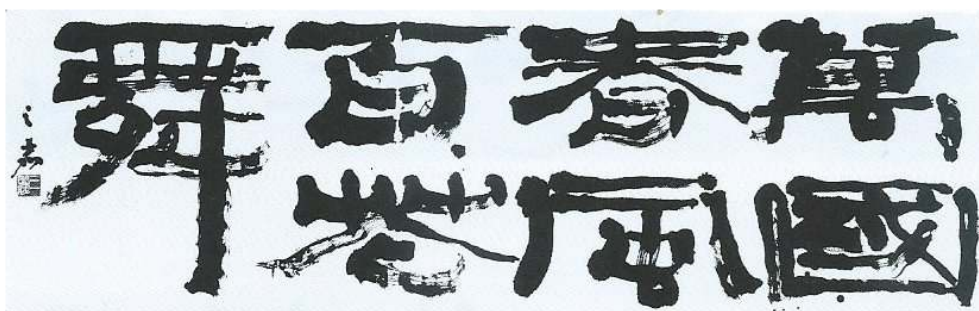 萬國
春風
百花
舞